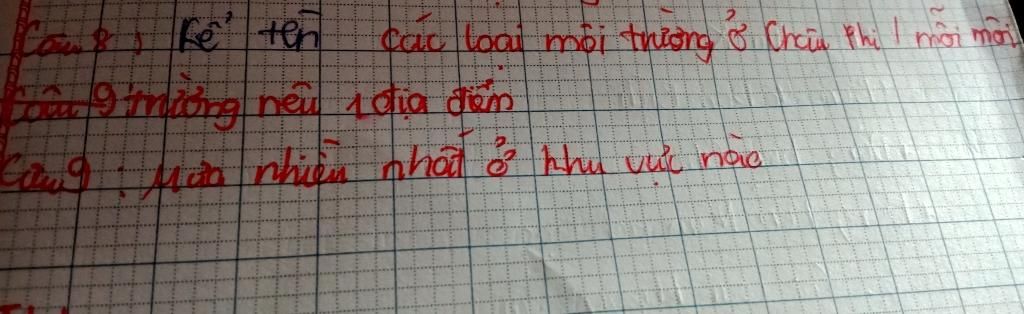 Câu 8 : Kể tên các loại môi trường ở Châu Phi, mỗi môi
Câu 9 trường nêu 1 địa điểm
Câu 9 : Mưa nhiều nhất ở khu vực nào